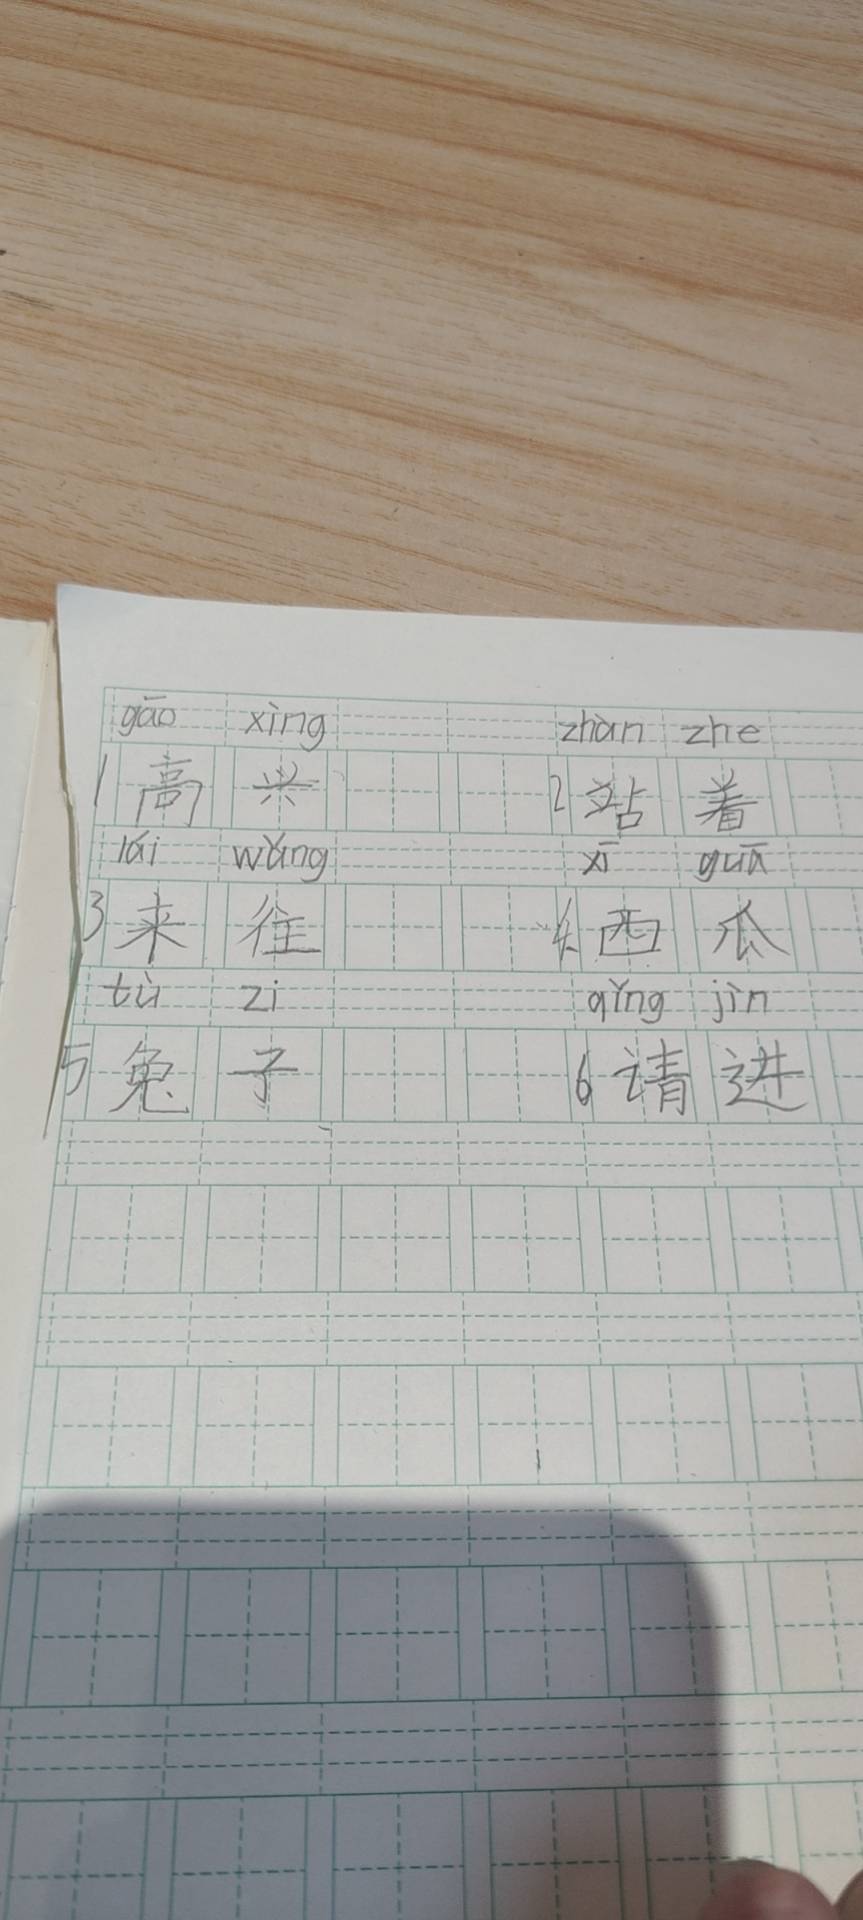 gāo xìng zhàn zhe
1 高 兴 2 站 着
lái wǎng xī guā
3 来 往 4 西 瓜
tù zi qǐng jìn
5 兔 子 6 请 进